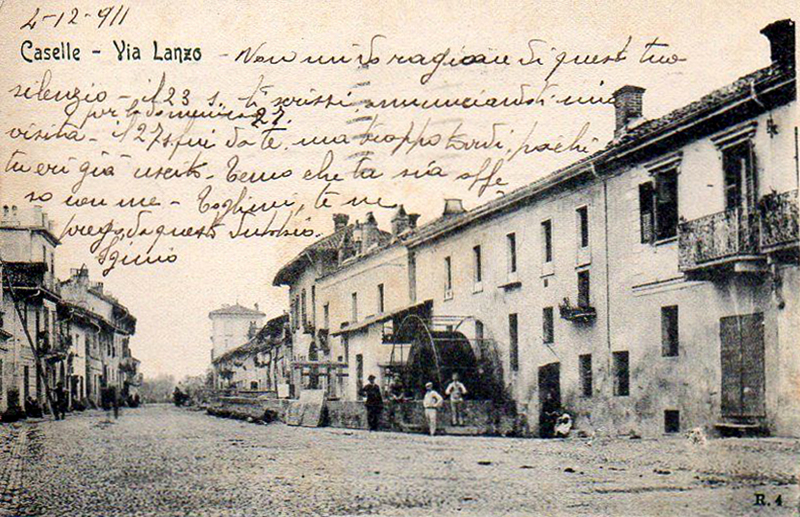 4-12-911
Caselle - Via Lanzo
- Non mi do ragione di questo tuo
silenzio - il 23 s. ti scrissi annunciandoti mia
per la domenica 27.
visita - il 27 fui da te, ma troppo tardi, poichè
tu eri già uscito - Temo che tu sia offe
so con me - Toglimi, te ne
prego, da questo dubbio.
Iginio
R. 4